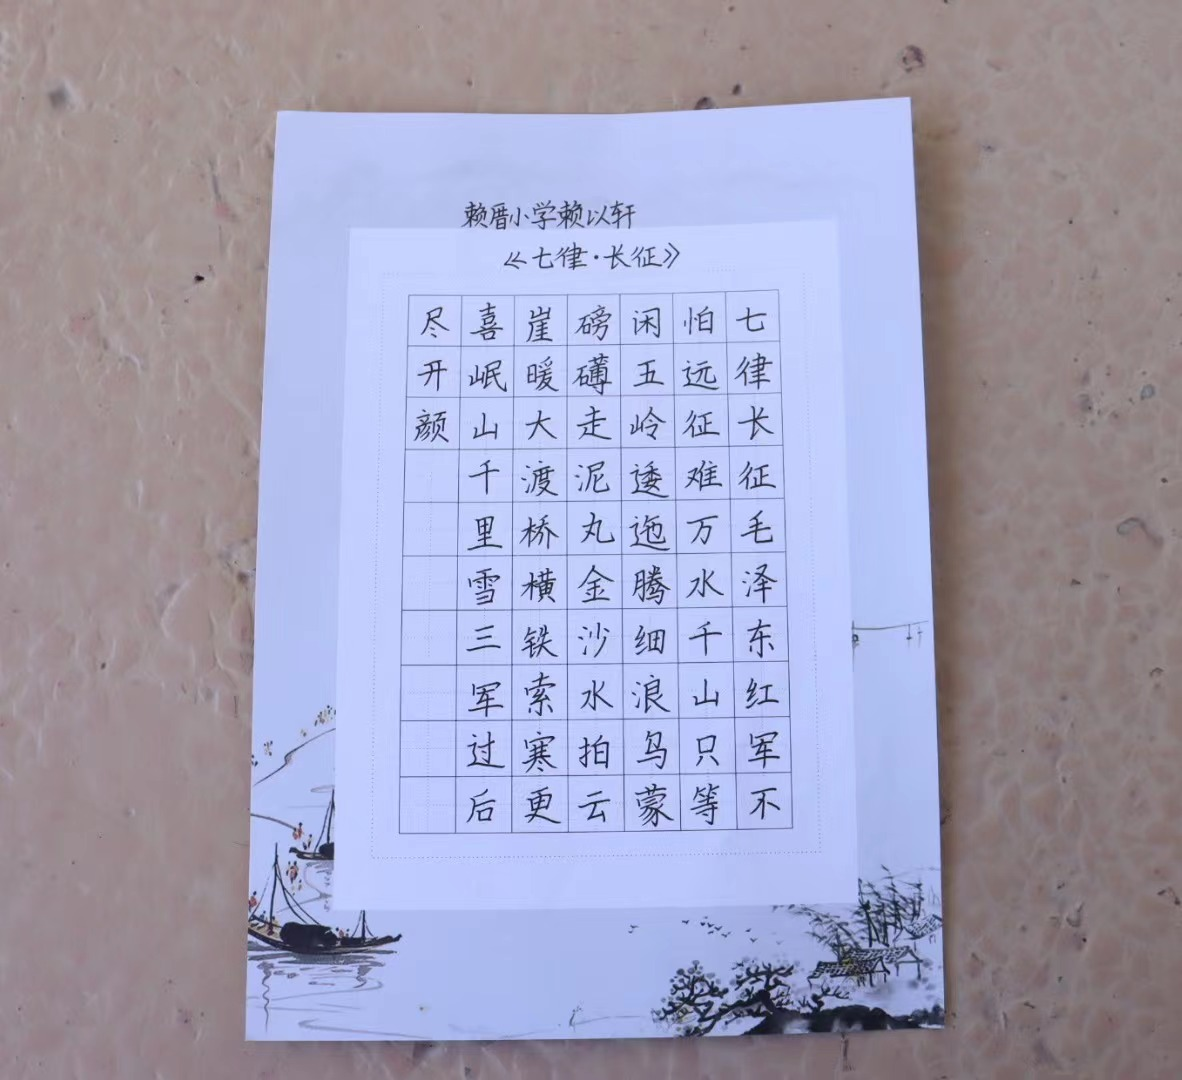 赖厝小学赖以轩
《七律·长征》
七律长征毛泽东红军不
怕远征难万水千山只等
闲五岭逶迤腾细浪乌蒙
磅礴走泥丸金沙水拍云
崖暖大渡桥横铁索寒更
喜岷山千里雪三军过后
尽开颜